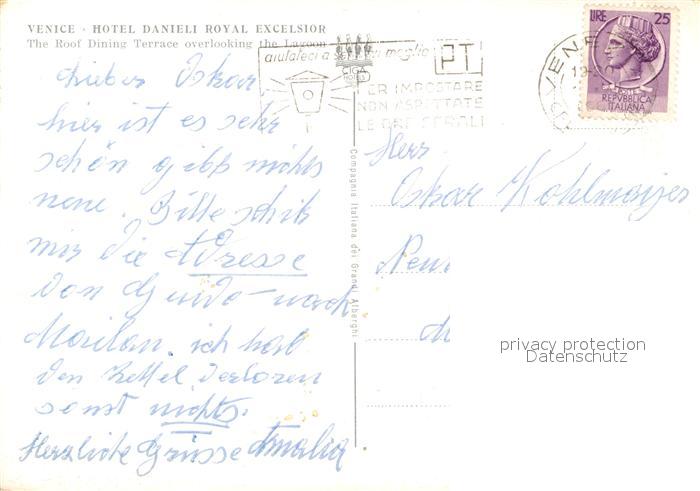 VENICE · HOTEL DANIELI ROYAL EXCELSIOR
The Roof Dining Terrace overlooking the Lagoon
aiutateci a servirvi meglio
PT
CIGA
HOTELS
PER IMPOSTARE
NON ASPETTATE
LE ORE SERALI
LIRE 25
REPVBBLICA
ITALIANA
Lieber Oskar
hier ist es sehr
schön gibß nichts
neue. Bitte schik
mir die Adresse
von Guido – nach
Mailan. ich hab
den Zettel verloren
sonst nichts.
Herzliche Grüsse Amalia
Compagnia Italiana dei Grandi Alberghi
Herr
Oskar Kohlmaijer
privacy protection
Datenschutz